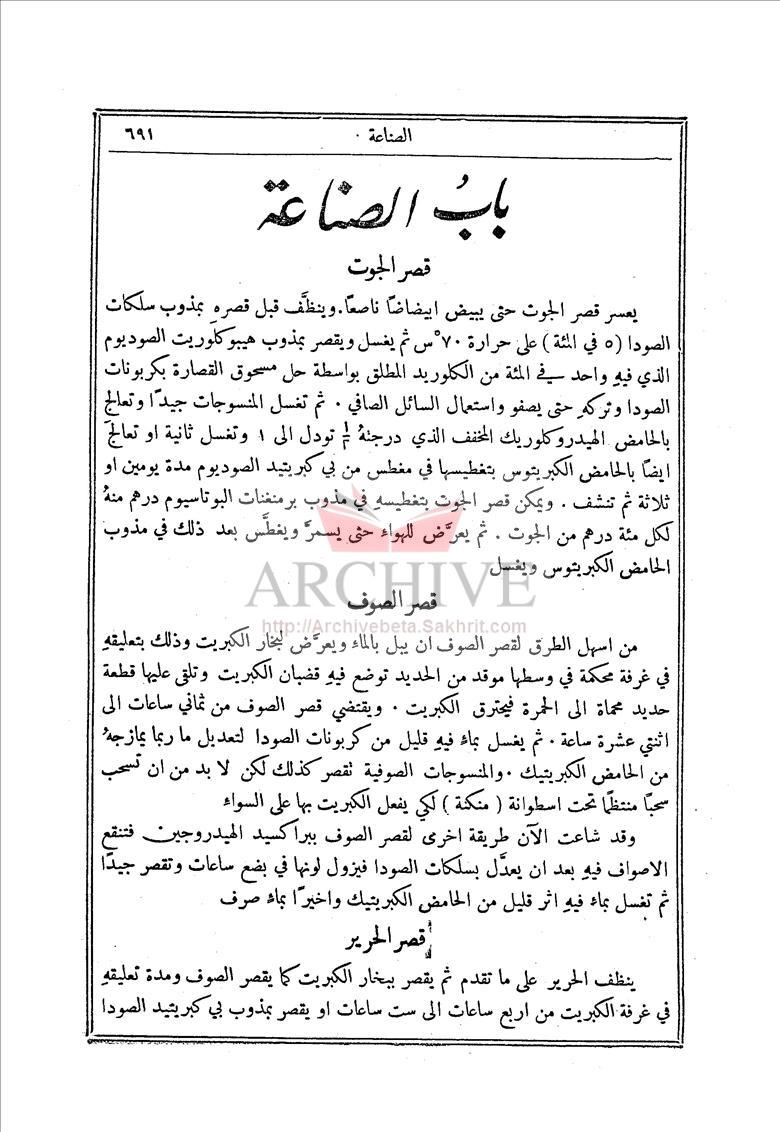 الصناعة ٠
٦٩١
بابُ الصناعة
قصر الجوت
يعسر قصر الجوت حتى يبيض ابيضاضًا ناصعًا. وينظَّف قبل قصرهِ بمذوب سلكات
الصودا (٥ في المئة) على حرارة ٧٠°س ثم يغسل ويقصر بمذوب هيبوكلوريت الصوديوم
الذي فيهِ واحد في المئة من الكلوريد المطلق بواسطة حل مسحوق القصارة بكربونات
الصودا وتركهِ حتى يصفو واستعمال السائل الصافي ٠ ثم تغسل المنسوجات جيدًا وتعالج
بالحامض الهيدروكلوريك المخفف الذي درجتهُ تودل الى ١ وتغسل ثانية او تعالج
ايضًا بالحامض الكبريتوس بتغطيسها في مغطس من بي كبريتيد الصوديوم مدة يومين او
ثلاثة ثم تنشف . ويمكن قصر الجوت بتغطيسهِ في مذوب برمنغنات البوتاسيوم درهم منهُ
لكل مئة درهم من الجوت . ثم يعرَّض للهواء حتى يسمرَّ ويغطَّس بعد ذلك في مذوب
الحامض الكبريتوس ويغسل
ARCHIVE
قصر الصوف
http://Archivebeta.Sakhrit.com
من اسهل الطرق لقصر الصوف ان يبل بالماء ويعرَّض لبخار الكبريت وذلك بتعليقهِ
في غرفة محكمة في وسطها موقد من الحديد توضع فيهِ قضبان الكبريت وتلقى عليها قطعة
حديد محماة الى الحمرة فيحترق الكبريت ٠ ويقتضي قصر الصوف من ثماني ساعات الى
اثنتي عشرة ساعة ٠ ثم يغسل بماء فيهِ قليل من كربونات الصودا لتعديل ما ربما يمازجهُ
من الحامض الكبريتيك ٠ والمنسوجات الصوفية تقصر كذلك لكن لا بد من ان تسحب
سحبًا منتظمًا تحت اسطوانة ( منكنة ) لكي يفعل الكبريت بها على السواء
وقد شاعت الآن طريقة اخرى لقصر الصوف ببراكسيد الهيدروجين فتنقع
الاصواف فيهِ بعد ان يعدَّل بسلكات الصودا فيزول لونها في بضع ساعات وتقصر جيدًا
ثم تغسل بماء فيهِ اثر قليل من الحامض الكبريتيك واخيرًا بماء صرف
قصر الحرير
ينظف الحرير على ما تقدم ثم يقصر ببخار الكبريت كما يقصر الصوف ومدة تعليقهِ
في غرفة الكبريت من اربع ساعات الى ست ساعات او يقصر بمذوب بي كبريتيد الصودا